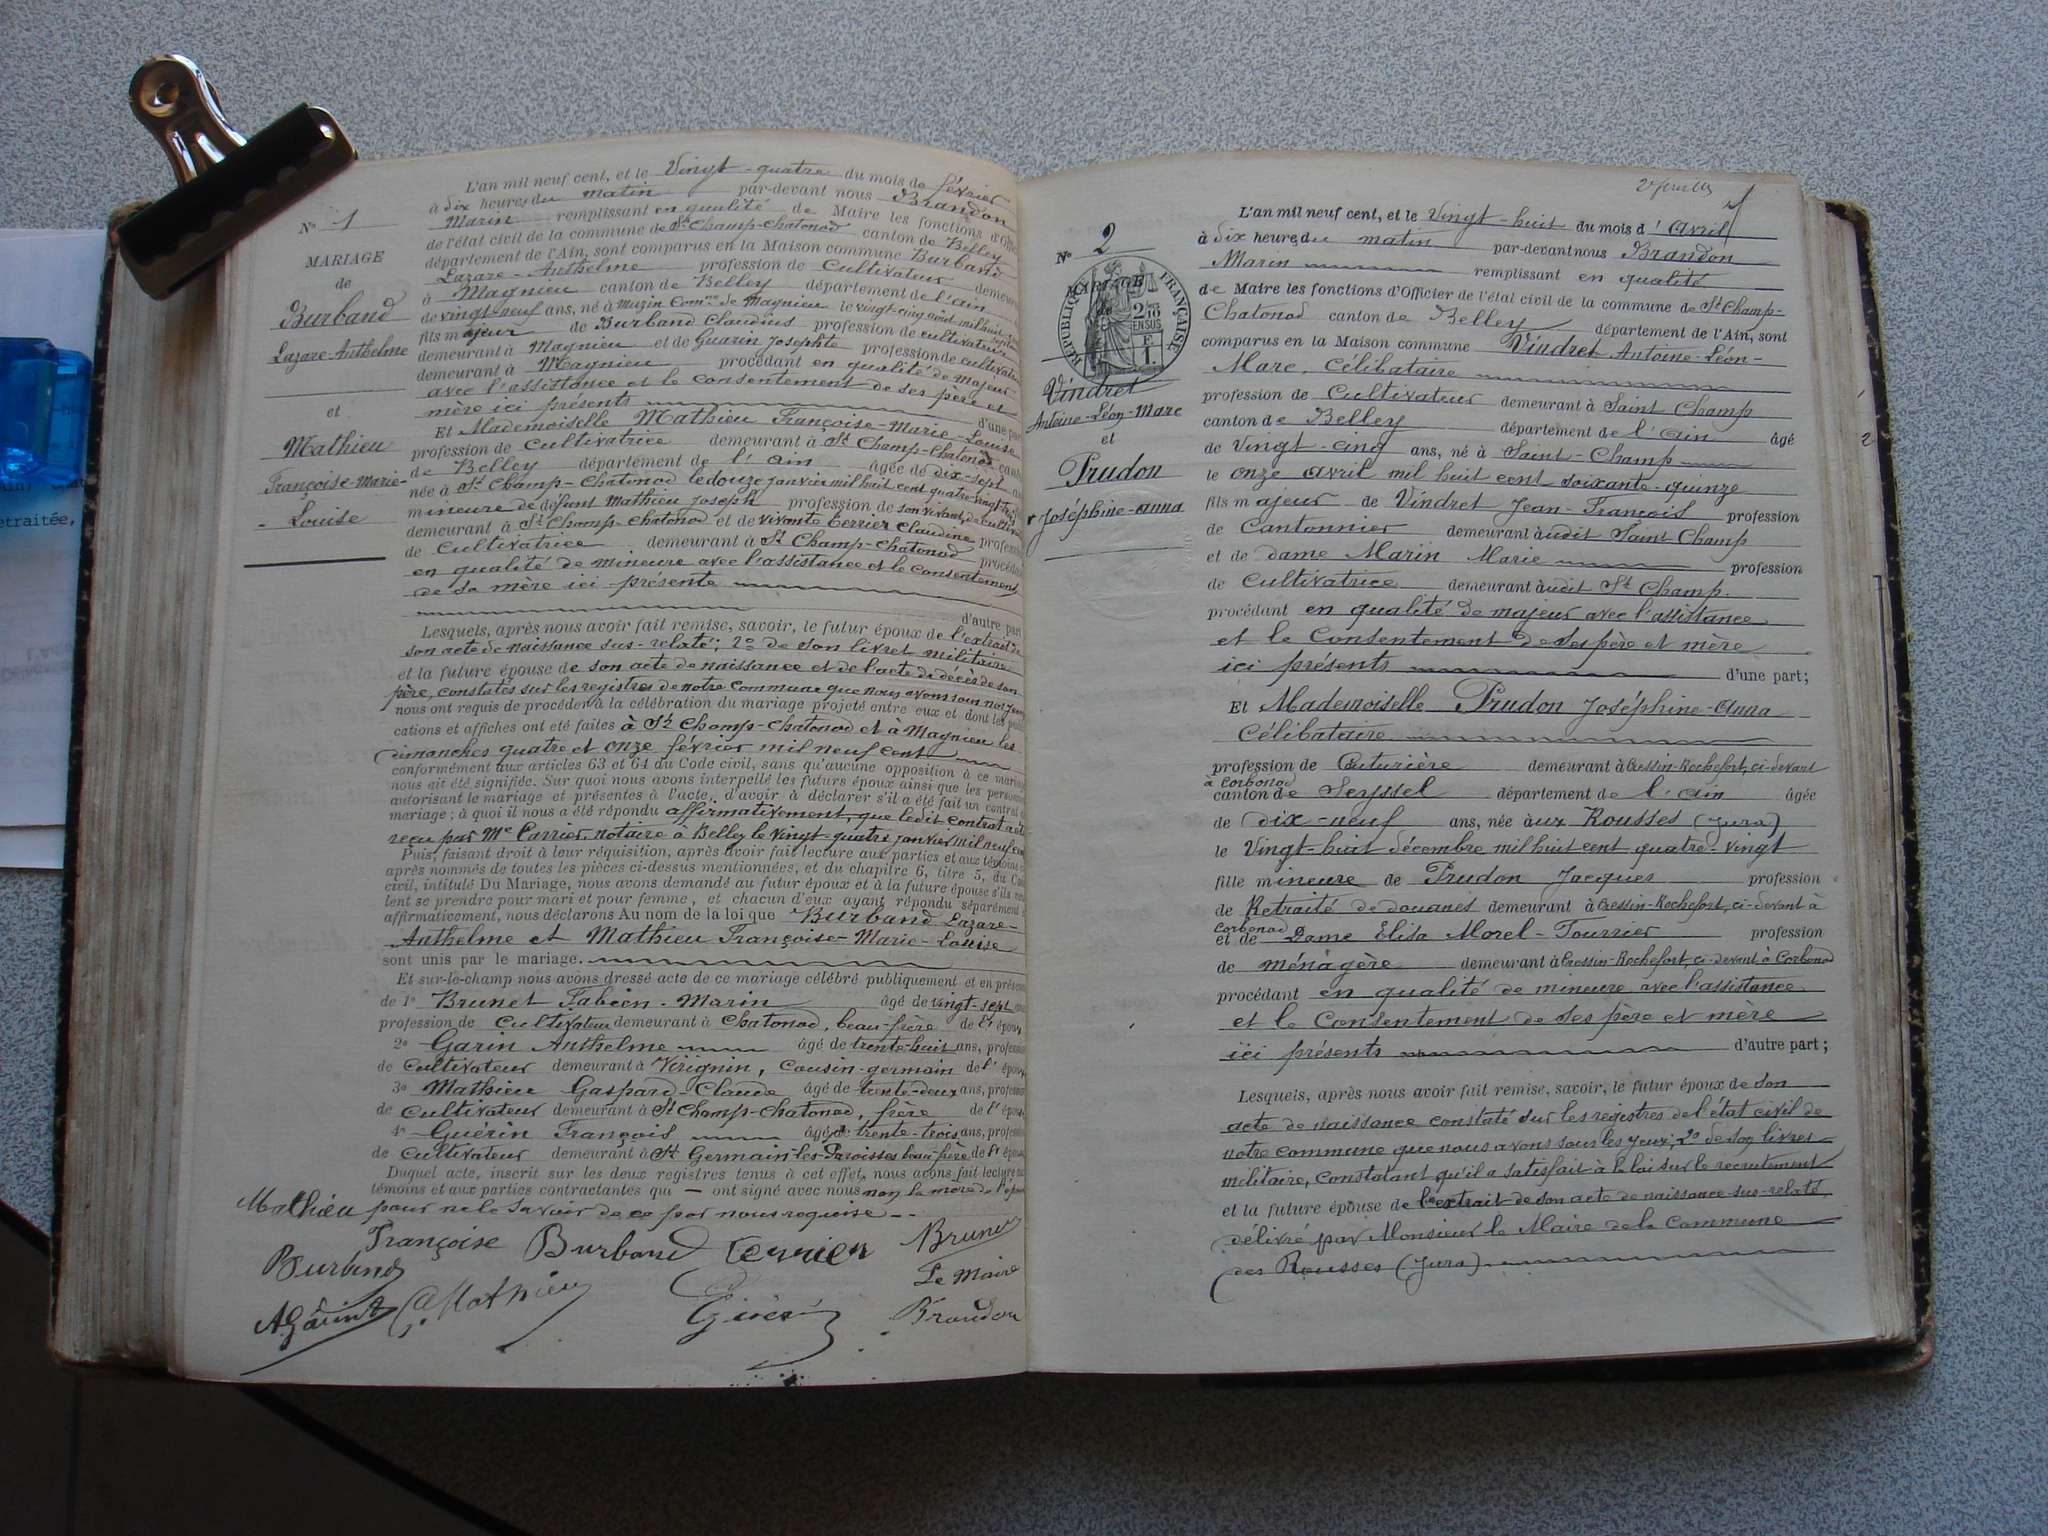 L'an mil neuf cent, et le Vingt-quatre du mois de février
à dix heures du matin par-devant nous Brandon
Marin remplissant en qualité de Maire les fonctions d'Offi
de l'état civil de la commune de St Champ-Chatonod canton de Belley
département de l'Ain, sont comparus en la Maison commune Burband
Lazare-Anthelme profession de Cultivateur demeu
à Magnieu canton de Belley département de l'ain
de vingt-neuf ans, né à Muzin Comne de Magnieu le vingt-cinq août mil huit cent
fils majeur de Burband Claudius profession de cultivateur
demeurant à Magnieu et de Guarin Josephte profession de cultivat
demeurant à Magnieu procédant en qualité de majeur
avec l'assistance et le consentement de ses père et
mère ici présents d'une part
Et Mademoiselle Mathieu Françoise-Marie-Louise
profession de Cultivatrice demeurant à St Champ-Chatonod cant
de Belley département de l'ain âgée de dix-sept
née à St Champ-Chatonod le douze janvier mil huit cent quatre-vingt
mineure de défunt Mathieu Joseph profession de son vivant, de cultiv
demeurant à St Champ-Chatonod et de vivante Terrier Claudine profess
de Cultivatrice demeurant à St Champ-Chatonod procéda
en qualité de mineure avec l'assistance et le consentement
de sa mère ici présente
d'autre part
Lesquels, après nous avoir fait remise, savoir, le futur époux de l'extrait de
son acte de naissance sus-relaté; 2º de son livret militaire
et la future épouse de son acte de naissance et de l'acte de décès de son
père, constatés sur les registres de notre commune que nous avons sous nos yeux
nous ont requis de procéder à la célébration du mariage projeté entre eux et dont les publi
cations et affiches ont été faites à St Champ-Chatonod et à Magnieu les
dimanches quatre et onze février mil neuf cent
conformément aux articles 63 et 64 du Code civil, sans qu'aucune opposition à ce maria
nous ait été signifiée. Sur quoi nous avons interpellé les futurs époux ainsi que les person
autorisant le mariage et présentes à l'acte, d'avoir à déclarer s'il a été fait un contrat
mariage; à quoi il nous a été répondu affirmativement, que ledit contrat a été
reçu par Me Carrier notaire à Belley le vingt-quatre janvier mil neuf cent
Puis, faisant droit à leur réquisition, après avoir fait lecture aux parties et aux témoins
après nommés de toutes les pièces ci-dessus mentionnées, et du chapitre 6, titre 5, du Co
civil, intitulé Du Mariage, nous avons demandé au futur époux et à la future épouse s'ils veu
lent se prendre pour mari et pour femme, et chacun d'eux ayant répondu séparément
affirmativement, nous déclarons Au nom de la loi que Burband Lazare-
Anthelme et Mathieu Françoise-Marie-Louise
sont unis par le mariage.
Et sur-le-champ nous avons dressé acte de ce mariage célébré publiquement et en prése
de 1º Brunet Fabien-Marin âgé de vingt-sept
profession de Cultivateur demeurant à Chatonod, beau-frère de l' épou
2º Garin Anthelme âgé de trente-huit ans, profess
de Cultivateur demeurant à Virignin, Cousin-germain de l' épou
3º Mathieu Gaspard-Claude âgé de trente-deux ans, profess
de Cultivateur demeurant à St Champ-Chatonod, frère de l' épou
4º Guérin François âgé de trente-trois ans, profess
de Cultivateur demeurant à St Germain-les-Paroisses beau-frère de l' épou
Duquel acte, inscrit sur les deux registres tenus à cet effet, nous avons fait lecture aux
témoins et aux parties contractantes qui — ont signé avec nous non la mère de l'épou
pour ne le savoir de ce par nous requise
Mathieu Françoise Burband Terrier Brunet
Burband
A Garin C Mathieu
Le Maire
Brandon
Nº 1
MARIAGE
de
Burband
Lazare-Anthelme
et
Mathieu
Françoise-Marie-
Louise
etraitée,
L'an mil neuf cent, et le Vingt-huit du mois d'Avril
à dix heures du matin par-devant nous Brandon
Marin remplissant en qualité
de Maire les fonctions d'Officier de l'état civil de la commune de St Champ-
Chatonod canton de Belley département de l'Ain, sont
comparus en la Maison commune Vindret Antoine-Léon-
Marc, Célibataire
profession de Cultivateur demeurant à Saint Champ
canton de Belley département de l'ain âgé
de vingt-cinq ans, né à Saint-Champ
le onze avril mil huit cent soixante-quinze
fils majeur de Vindret Jean-François profession
de Cantonnier demeurant audit Saint Champ
et de dame Marin Marie profession
de Cultivatrice demeurant audit St Champ.
procédant en qualité de majeur avec l'assistance
et le Consentement de ses père et mère
ici présents d'une part;
Et Mademoiselle Prudon Joséphine-Anna
Célibataire
profession de Couturière demeurant à Cressin-Rochefort, ci-devant
à Corbonod
canton de Seyssel département de l'ain âgée
de dix-neuf ans, née aux Rousses (Jura)
le Vingt-huit décembre mil huit cent quatre-vingt
fille mineure de Prudon Jacques profession
de Retraité de douanes demeurant à Cressin-Rochefort, ci-devant à
Corbonod
et de Dame Elisa Morel-Fourrier profession
de ménagère demeurant à Cressin-Rochefort, ci-devant à Corbonod
procédant en qualité de mineure avec l'assistance
et le Consentement de ses père et mère
ici présents d'autre part;
Lesquels, après nous avoir fait remise, savoir, le futur époux de son
acte de naissance constaté sur les registres de l'état civil de
notre commune que nous avons sous les yeux; 2º de son livret
militaire, constatant qu'il a satisfait à la loi sur le recrutement
et la future épouse de l'extrait de son acte de naissance sus-relaté,
délivré par Monsieur le Maire de la Commune
des Rousses (Jura)
Nº 2
MARIAGE
de
RÉPUBLIQUE FRANÇAISE
2/10
EN SUS
F.
1.
Vindret
Antoine-Léon-Marc
et
Prudon
Joséphine-Anna